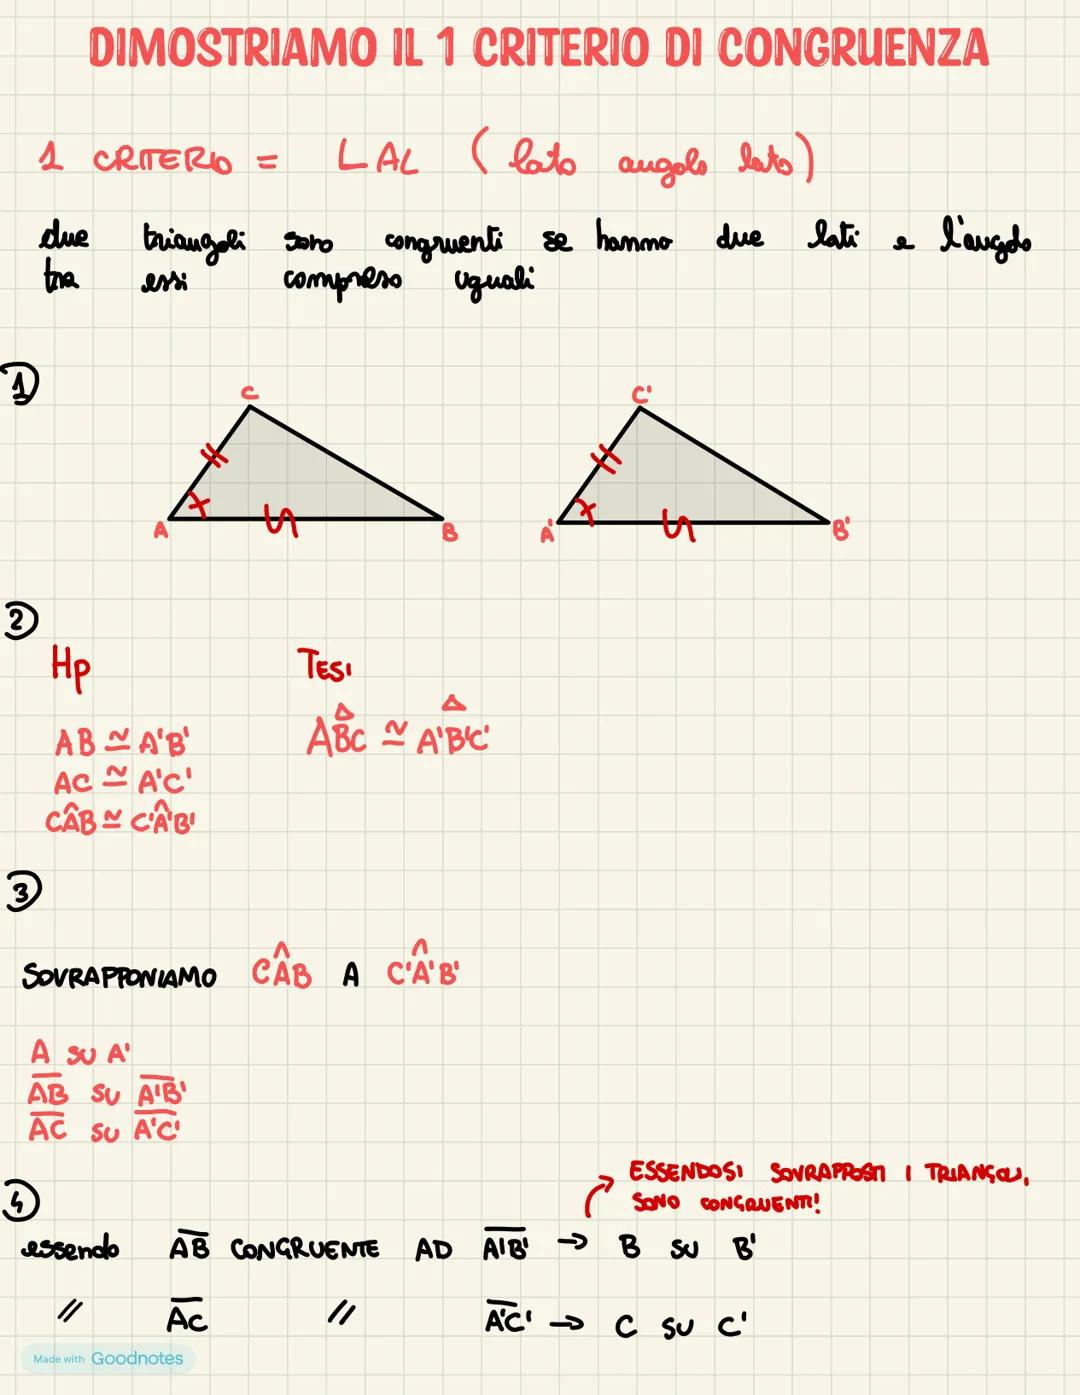 DIMOSTRIAMO IL 1 CRITERIO DI CONGRUENZA
1 CRITERIO = LAL (lato angolo lato)
due triangoli sono congruenti se hanno due lati e l'angolo
tra essi compreso uguali
1
C C'
A B A' B'
2
Hp TESI
AB ≅ A'B' ABC ≅ A'B'C'
AC ≅ A'C'
CÂB ≅ C'Â'B'
3
SOVRAPPONIAMO CÂB A C'Â'B'
A SU A'
AB SU A'B'
AC SU A'C'
4
ESSENDOSI SOVRAPPOSTI I TRIANGOLI,
SONO CONGRUENTI!
essendo AB CONGRUENTE AD A'B' → B SU B'
// AC // A'C' → C SU C'
Made with Goodnotes